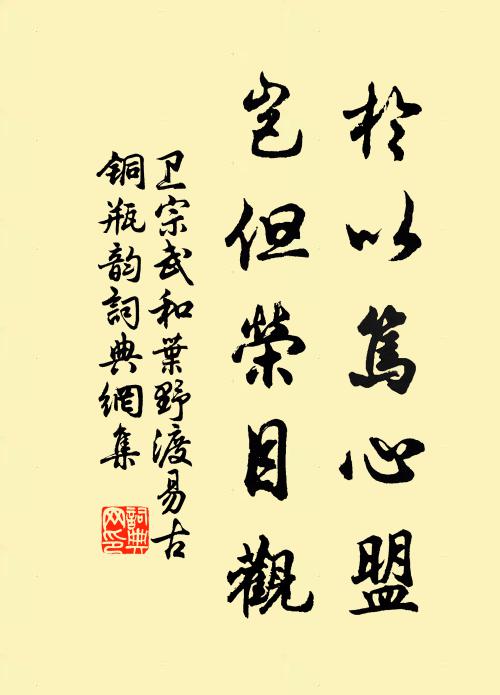 於以篤心盟
豈但榮目觀
卫宗武和葉野渡易古
銅瓶韵詞典網集
詞典
网印